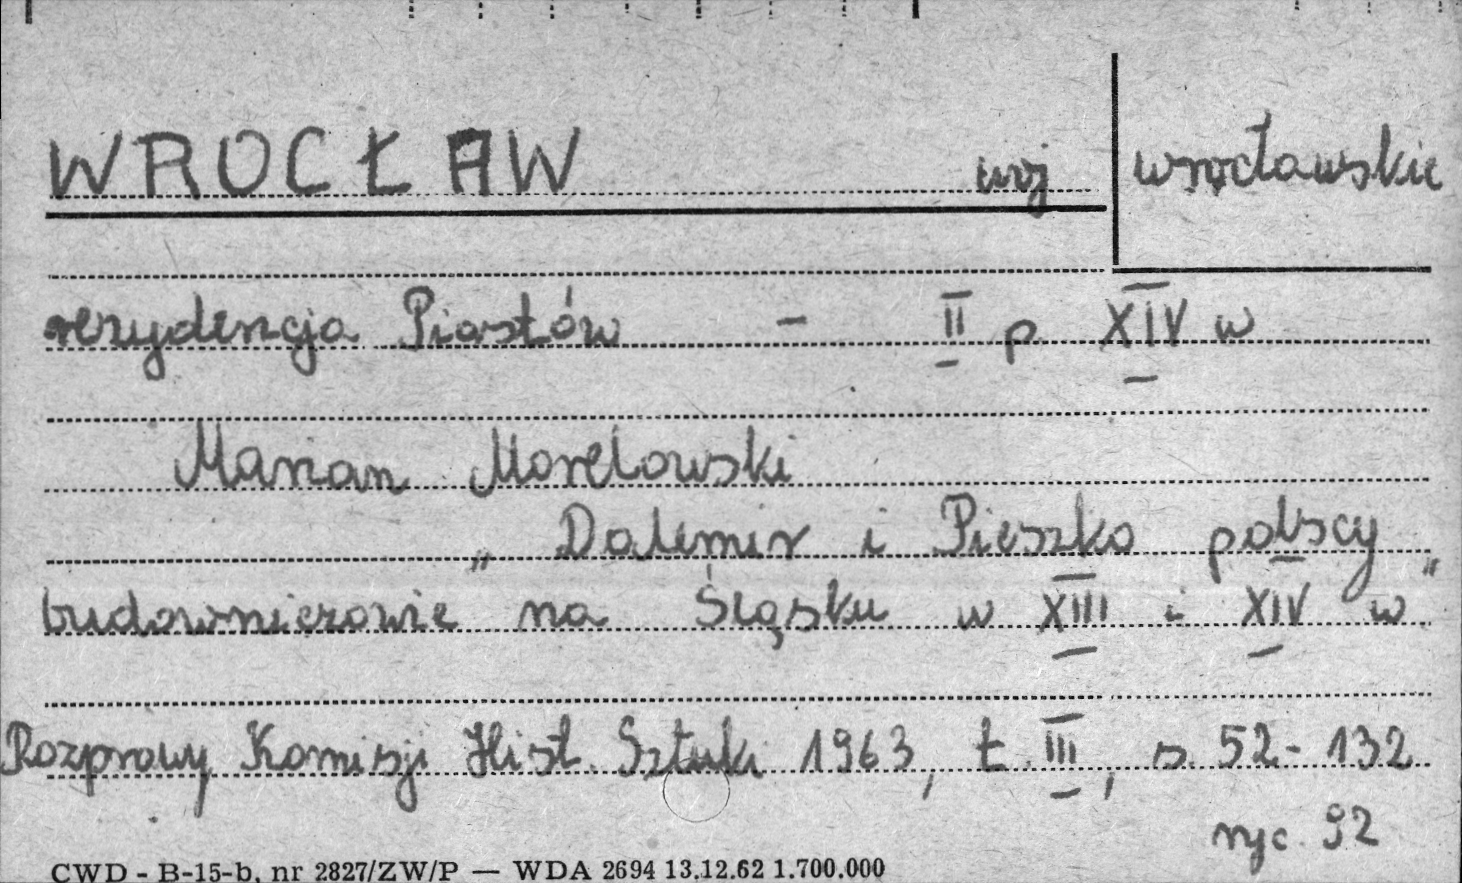 WROCŁAW woj wrocławskie
rezydencja Piastów - II p XIV w
Marian Morelowski
„ Dalemir i Pieszko polscy
budowniczowie na Śląsku w XIII i XIV w "
Rozprawy Komisji Hist. Sztuki 1963, t. III, s. 52-132
ryc. 92
CWD - B-15-b, nr 2827/ZW/P — WDA 2694 13.12.62 1.700.000